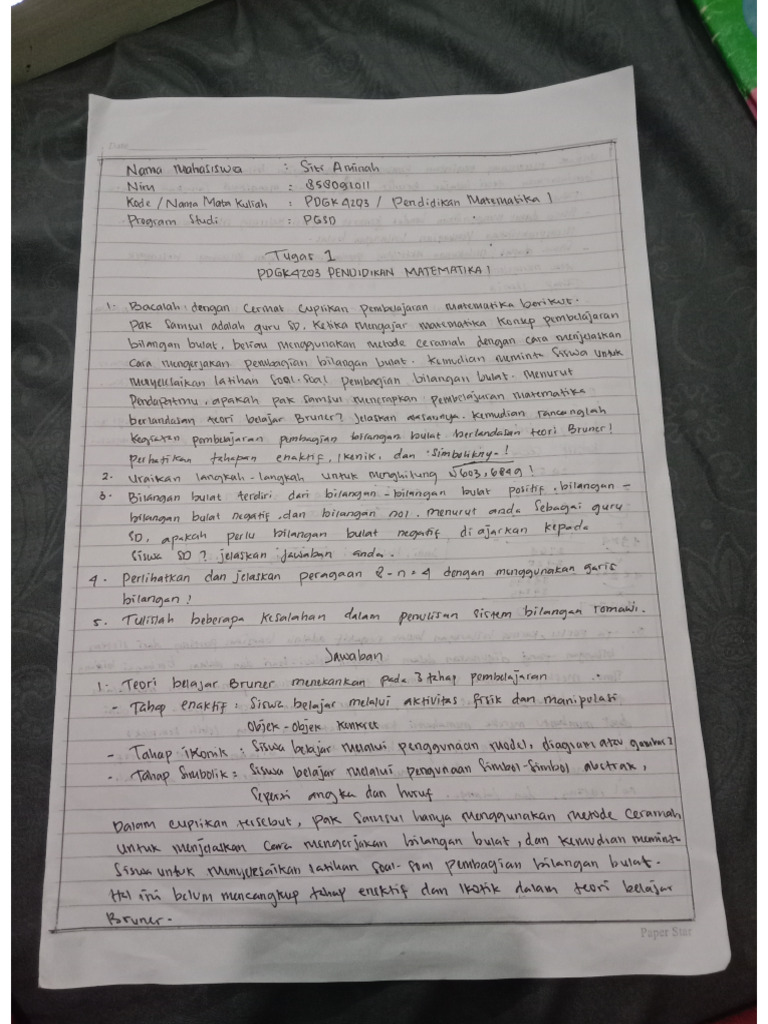 Date
Nama Mahasiswa : Siti Aminah
Nim : 858091011
Kode / Nama Mata Kuliah : PDGK 4203 / Pendidikan Matematika 1
Program Studi : PGSD
Tugas 1
PDGK4203 PENDIDIKAN MATEMATIKA 1
1. Bacalah dengan cermat cuplikan pembelajaran matematika berikut.
Pak Samsul adalah guru SD. Ketika mengajar matematika konsep pembelajaran
bilangan bulat, beliau menggunakan metode ceramah dengan cara menjelaskan
cara mengerjakan pembagian bilangan bulat. Kemudian meminta siswa untuk
menyelesaikan latihan soal-soal pembagian bilangan bulat. Menurut
Pendapatmu, apakah pak Samsul menerapkan pembelajaran matematika
berlandasan teori belajar Bruner? Jelaskan alasannya. Kemudian rancanglah
kegiatan pembelajaran pembagian bilangan bulat berlandasan teori Bruner!
Perhatikan tahapan enaktif, ikonik, dan simboliknya!
2. Uraikan langkah-langkah untuk menghitung √603,6849!
3. Bilangan bulat terdiri dari bilangan-bilangan bulat positif, bilangan-
bilangan bulat negatif, dan bilangan nol. menurut anda sebagai guru
SD, apakah perlu bilangan bulat negatif diajarkan kepada
siswa SD? jelaskan jawaban anda.
4. Perlihatkan dan jelaskan peragaan 2-n=4 dengan menggunakan garis
bilangan!
5. Tulislah beberapa kesalahan dalam penulisan sistem bilangan romawi.
Jawaban
1. Teori belajar Bruner menekankan pada 3 tahap pembelajaran
- Tahap enaktif : Siswa belajar melalui aktivitas fisik dan manipulasi
objek-objek konkret
- Tahap ikonik : Siswa belajar melalui penggunaan model, diagram atau gambar2
- Tahap Simbolik : Siswa belajar melalui pengunaan simbol-simbol abstrak,
seperti angka dan huruf
Dalam cuplikan tersebut, pak Samsul hanya menggunakan metode ceramah
untuk menjelaskan cara mengerjakan bilangan bulat, dan kemudian meminta
siswa untuk menyelesaikan latihan soal-soal pembagian bilangan bulat.
Hal ini belum mencangkup tahap enaktif dan ikotik dalam teori belajar
Bruner.
Paper Star